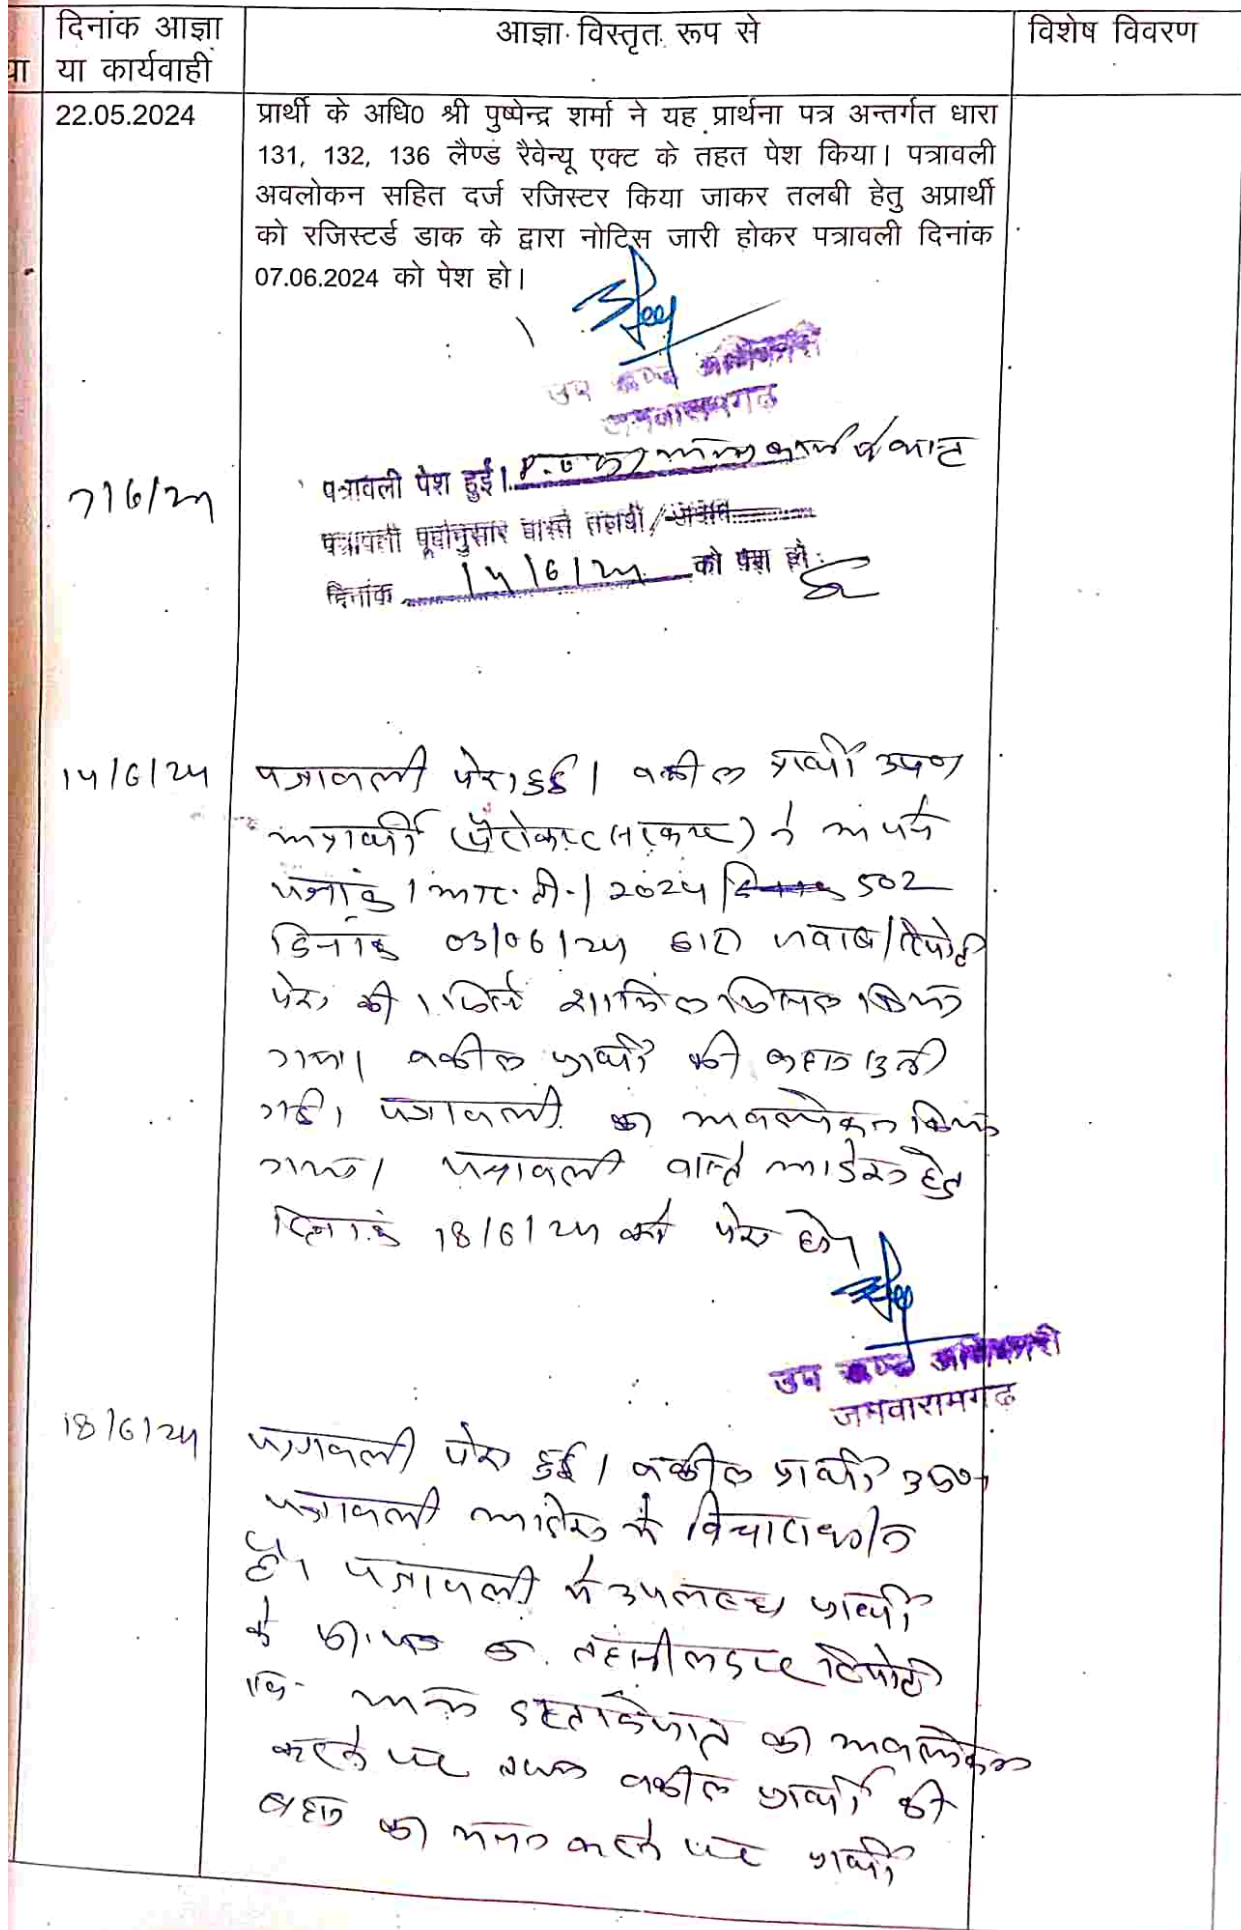 दिनांक आज्ञा
या कार्यवाही
आज्ञा विस्तृत रूप से
विशेष विवरण
या
22.05.2024
प्रार्थी के अधि0 श्री पुष्पेन्द्र शर्मा ने यह प्रार्थना पत्र अन्तर्गत धारा
131, 132, 136 लैण्ड रैवेन्यू एक्ट के तहत पेश किया। पत्रावली
अवलोकन सहित दर्ज रजिस्टर किया जाकर तलबी हेतु अप्रार्थी
को रजिस्टर्ड डाक के द्वारा नोटिस जारी होकर पत्रावली दिनांक
07.06.2024 को पेश हो।
उप खण्ड अधिकारी
जमवारामगढ़
7/6/24
पत्रावली पेश हुई। अन्य कार्य में व्यस्त
पत्रावली पूर्वानुसार वास्ते तलबी/जवाब
दिनांक 14/6/24 को पेश हो
14/6/24
पत्रावली पेश हुई। वकील प्रार्थी उप०
अप्रार्थी (पैरोकार सरकार) ने अपने
पत्रांक/आर.टी./2024/ 502
दिनांक 03/06/24 द्वारा जवाब/रिपोर्ट
पेश की। जिसे शामिल मिसल किया
गया। वकील प्रार्थी की बहस सुनी
गई। पत्रावली का अवलोकन किया
गया। पत्रावली वास्ते आदेश हेतु
दिनांक 18/6/24 को पेश हो।
उप खण्ड अधिकारी
जमवारामगढ़
18/6/24
पत्रावली पेश हुई। वकील प्रार्थी उप०
पत्रावली आदेश में विचाराधीन
है। पत्रावली में उपलब्ध प्रार्थी
के प्रा.पत्र व तहसीलदार रिपोर्ट
अन्य दस्तावेजात का अवलोकन
करने पर तथा वकील प्रार्थी की
बहस का मनन करने पर प्रार्थी